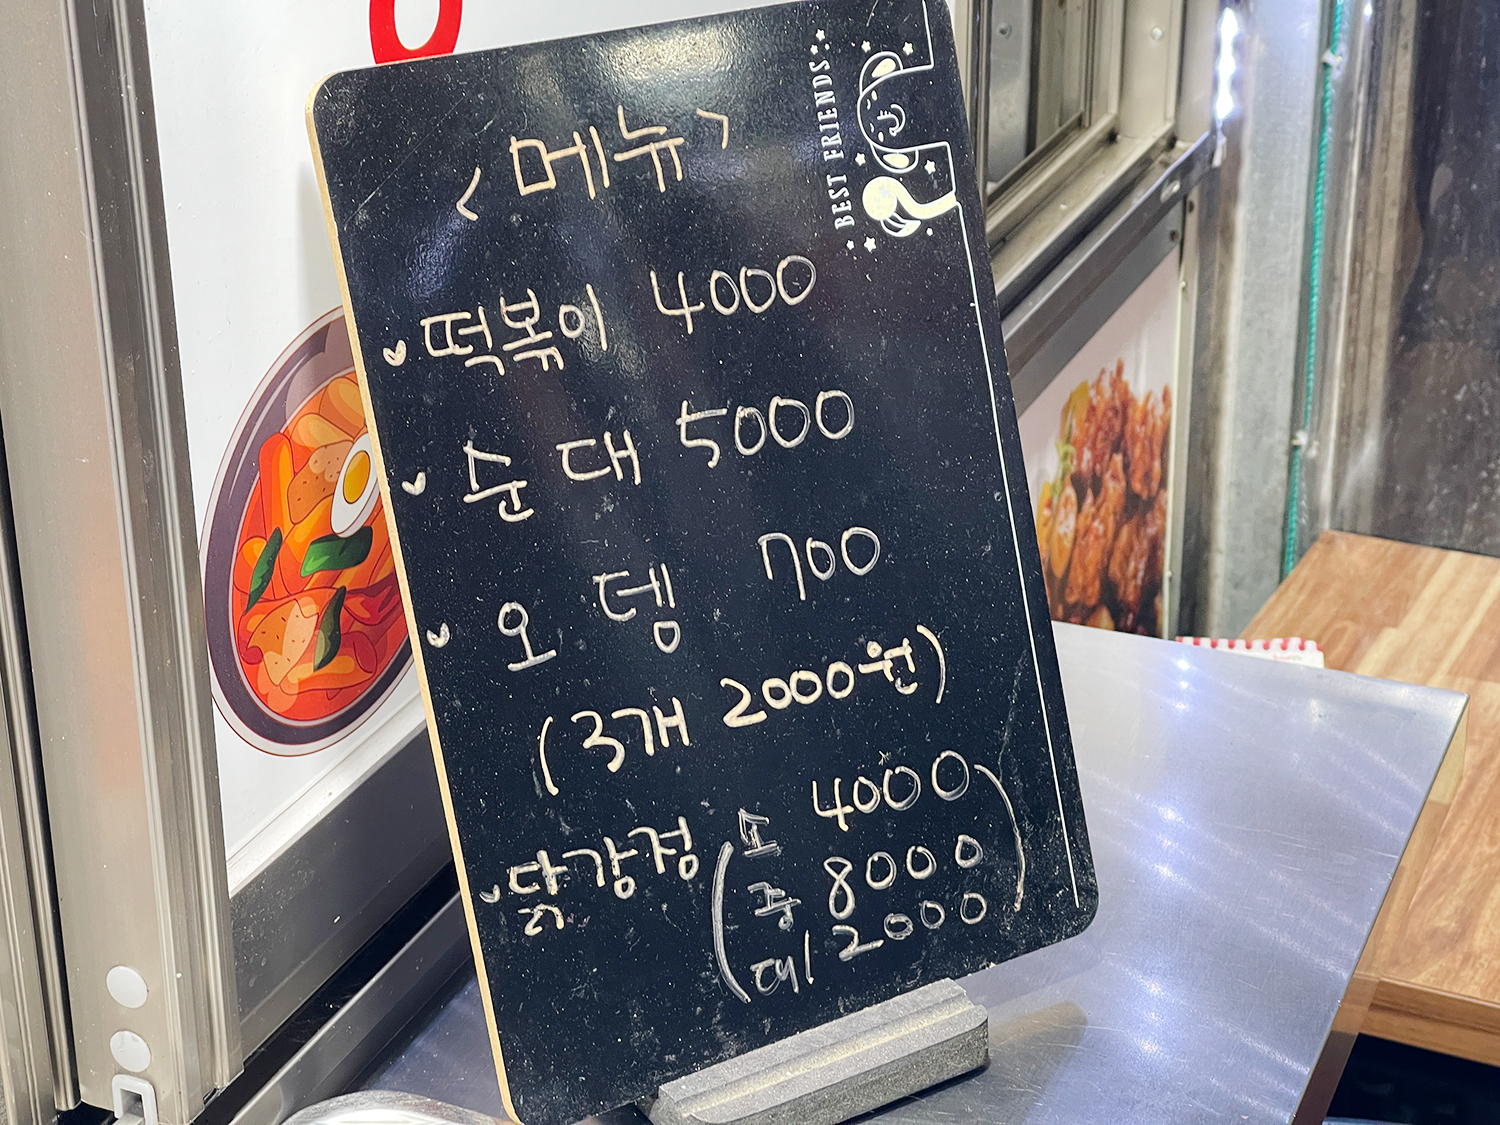 <메뉴>
BEST FRIENDS
떡볶이 4000
순대 5000
오뎅 700
(3개 2000원)
닭강정 (소 4000
중 8000
대 12000)